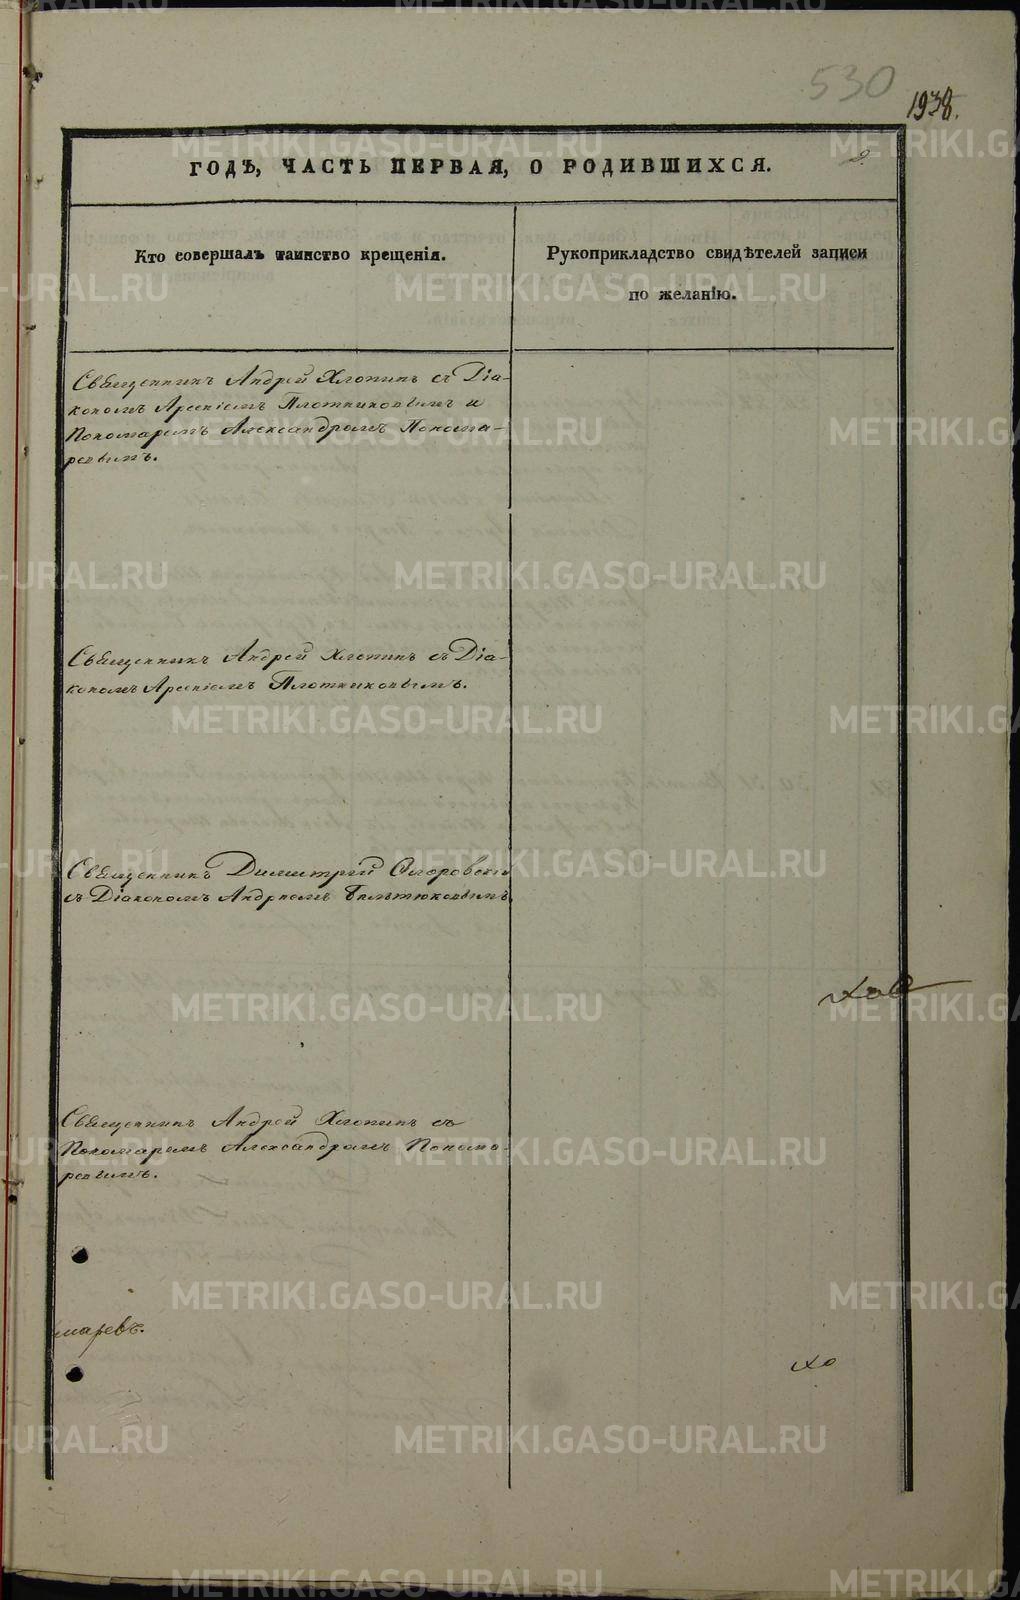 530
1938.
ГОДѢ, ЧАСТЬ ПЕРВАЯ, О РОДИВШИХСЯ.
Кто совершалъ таинство крещенія.
Рукоприкладство свидѣтелей записи
по желанію.
Священникъ Андрей Хлопинъ съ Діа-
кономъ Арсеніемъ Плотниковымъ и
Пономаремъ Александромъ Понома-
ревымъ.
Священникъ Андрей Хлопинъ съ Діа-
кономъ Арсеніемъ Плотниковымъ.
Священникъ Димитрій
съ Діакономъ Андреемъ
Священникъ Андрей Хлопинъ съ
Пономаремъ Александромъ Понома-
ревымъ.
маревъ.
METRIKI.GASO-URAL.RU